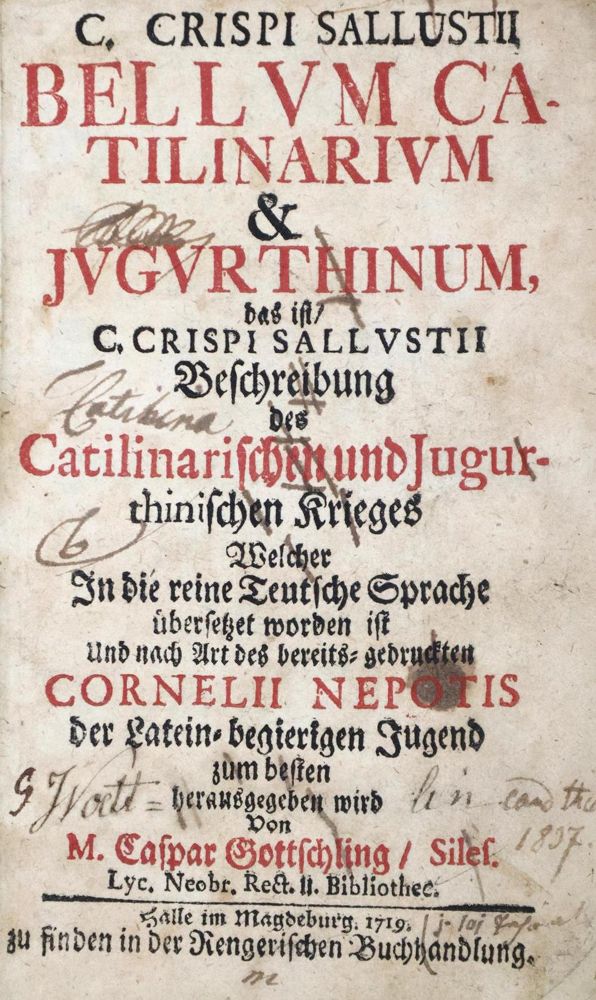 C. CRISPI SALLUSTII
BELLVM CA-
TILINARIVM
&
JVGVRTHINUM,
das ist/
C. CRISPI SALLVSTII
Beschreibung
des
Catilina
Catilinarischen und Jugur-
thinischen Krieges
Welcher
In die reine Teutsche Sprache
übersetzet worden ist
Und nach Art des bereits-gedruckten
CORNELII NEPOTIS
der Latein-begierigen Jugend
zum besten
herausgegeben wird
von
1837.
M. Caspar Gottschling / Siles.
Lyc. Neobr. Rect. u. Bibliothec.
Halle im Magdeburg. 1719.
zu finden in der Rengerischen Buchhandlung.